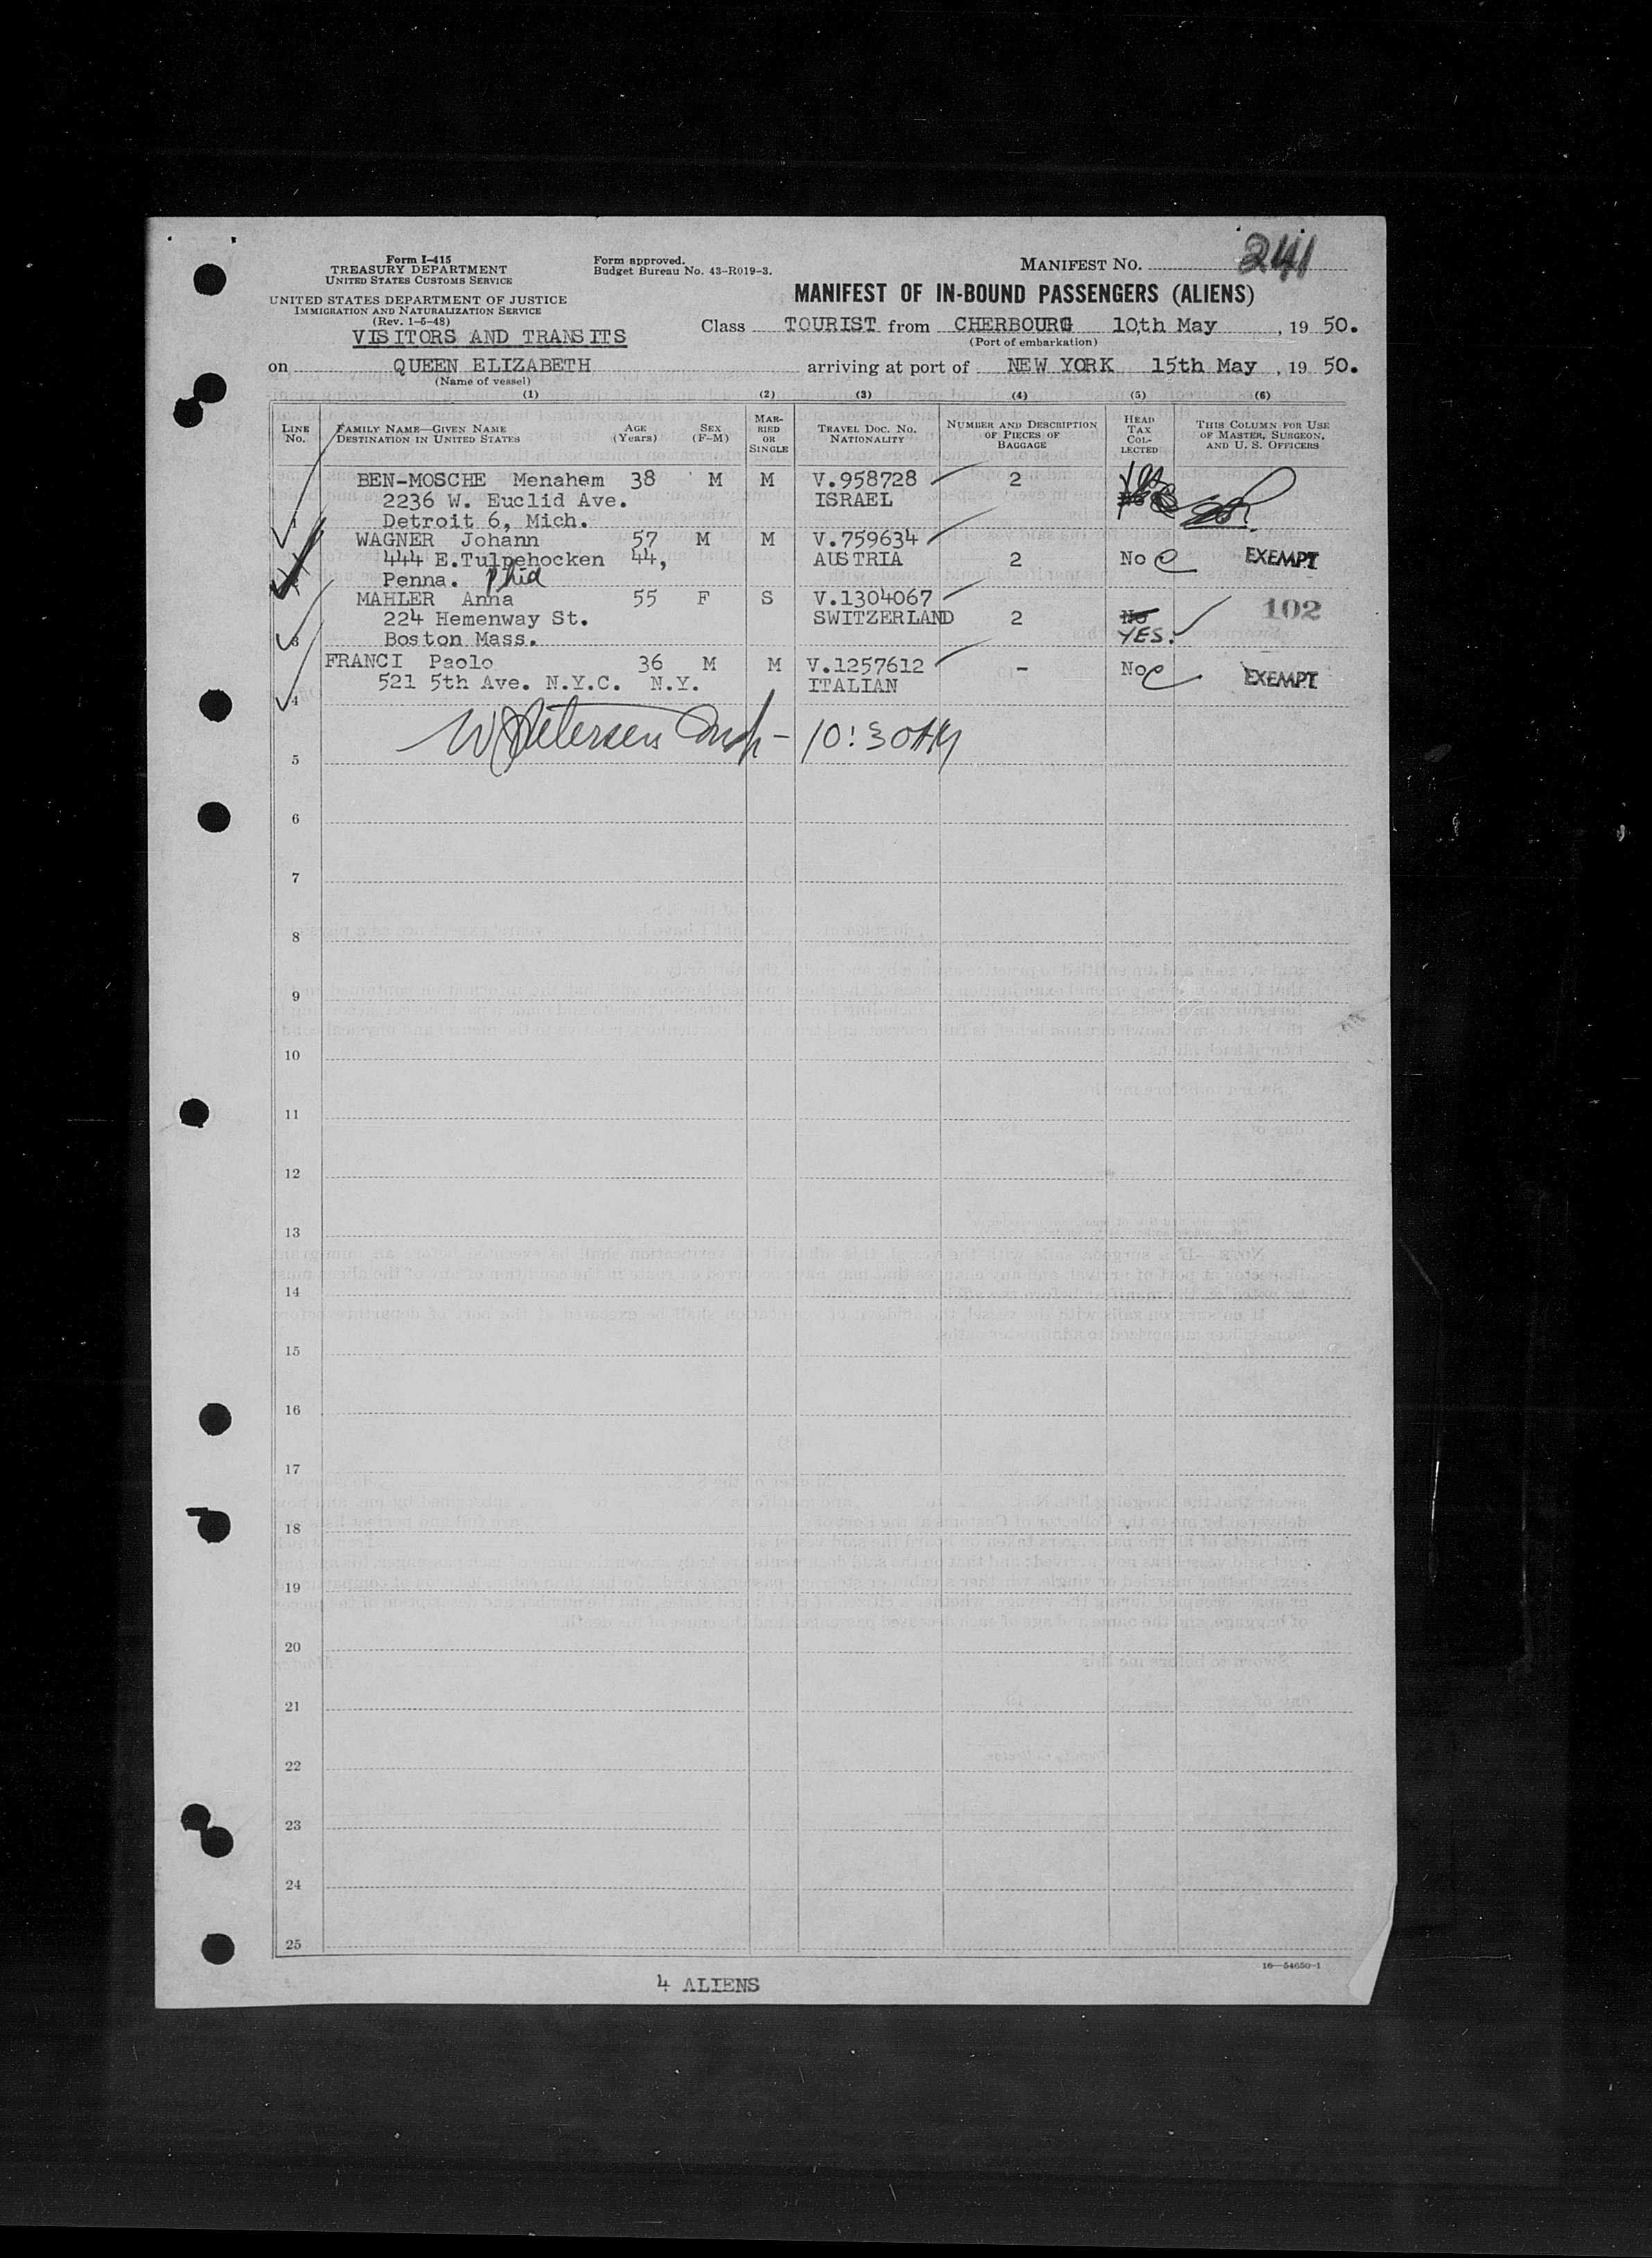 Form I-415
TREASURY DEPARTMENT
UNITED STATES CUSTOMS SERVICE
UNITED STATES DEPARTMENT OF JUSTICE
IMMIGRATION AND NATURALIZATION SERVICE
(Rev. 1-5-48)
VISITORS AND TRANSITS
Form approved.
Budget Bureau No. 43-R019-3.
MANIFEST NO. 241
MANIFEST OF IN-BOUND PASSENGERS (ALIENS)
Class TOURIST from CHERBOURG 10th May, 19 50.
(Port of embarkation)
on QUEEN ELIZABETH arriving at port of NEW YORK 15th May, 19 50.
(Name of vessel)
(1) (2) (3) (4) (5) (6)
LINE No.
FAMILY NAME—GIVEN NAME
DESTINATION IN UNITED STATES
AGE (Years)
SEX (F-M)
MARRIED OR SINGLE
TRAVEL DOC. NO. NATIONALITY
NUMBER AND DESCRIPTION OF PIECES OF BAGGAGE
HEAD TAX COLLECTED
THIS COLUMN FOR USE OF MASTER, SURGEON, AND U. S. OFFICERS
BEN-MOSCHE Menahem 38 M M V.958728 2 Yes
2236 W. Euclid Ave. ISRAEL
1 Detroit 6, Mich.
WAGNER Johann 57 M M V.759634
444 E.Tulpehocken 44, AUSTRIA 2 No EXEMPT
Penna. Phid
MAHLER Anna 55 F S V.1304067 102
224 Hemenway St. SWITZERLAND 2 No
3 Boston Mass. YES.
FRANCI Paolo 36 M M V.1257612 - No EXEMPT
521 5th Ave. N.Y.C. N.Y. ITALIAN
4
W Petersen Insp - 10:30AM
5
6
7
8
9
10
11
12
13
14
15
16
17
18
19
20
21
22
23
24
25
16—54650-1
4 ALIENS